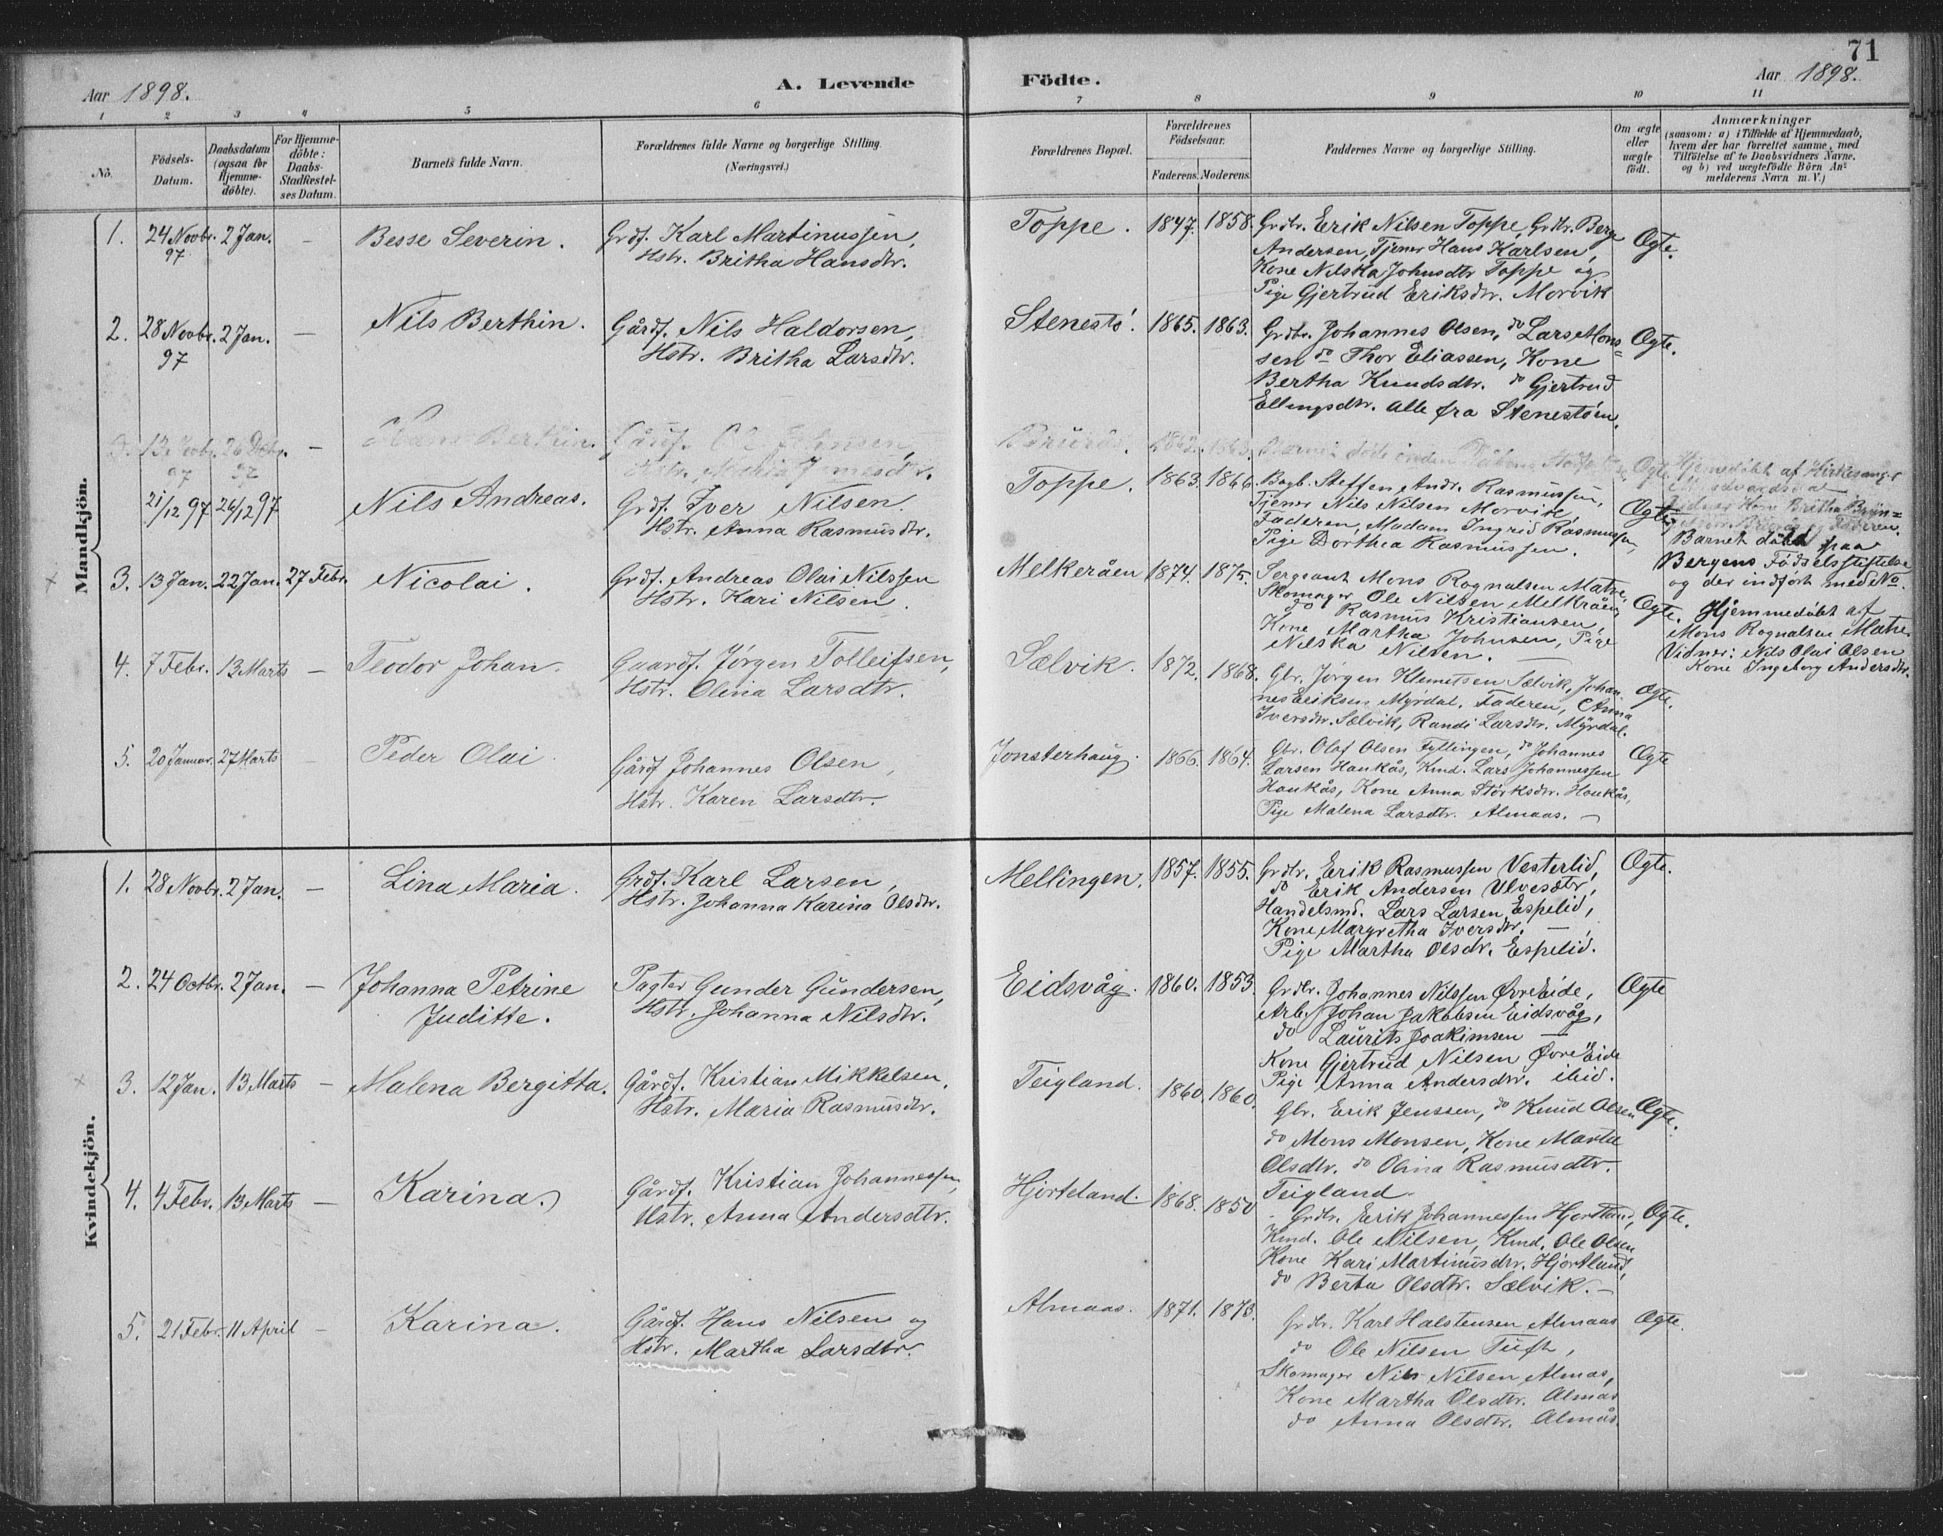 71
Aar 1898.
A. Levende Födte.
Aar 1898.
1 2 3 4 5 6 7 8 9 10 11
No.
Födsels-Datum.
Daabsdatum (ogsaa för Hjemmedöbte).
For Hjemmedöbte: Daabs-Stadfæstelses Datum.
Barnets fulde Navn.
Forældrenes fulde Navne og borgerlige Stilling.
(Næringsvei.)
Forældrenes Bopæl.
Forældrenes Födselsaar.
Faderens. Moderens.
Faddernes Navne og borgerlige Stilling.
Om ægte eller uægte födt.
Anmærkninger
(saasom: a) i Tilfælde af Hjemmedaab, hvem der har forrettet samme, med Tilföielse af to Daabsvidners Navne, og b) ved uægtefödte Börn Anmelderens Navn m. V.)
Mandkjön.
1. 24 Novbr. 97 2 Jan. — Besse Severin.
Grdf. Karl Martinussen,
Hstr. Britha Hansdtr.
Toppe. 1847. 1858.
Grdbr. Erik Nilsen Toppe, Grdbr. Berge
Andersen, Tjener Hans Karlsen,
Kone Nilska Johnsdtr Toppe og
Pige Gjertrud Eriksdtr. Morvik
Ægte.
2. 28 Novbr. 97 2 Jan. — Nils Berthin.
Gårdf. Nils Haldorsen,
Hstr. Britha Larsdtr.
Stenestö. 1865. 1863.
Grdbr. Johannes Olsen, do Lars Mons=
sen do Thor Eliassen, Kone
Bertha Knudsdtr. do Gjertrud
Ellingsdtr. Alle fra Stenestöen.
Ægte.
97 26 97 — Berthin.
Gårdf.
Hstr.
1863.
Barnet döde inden
Ægte
Hjemmedöbt af Kirkesanger
Vidner Kone Britha
Faderen.
21/12 97 26/12 97 Nils Andreas.
Grdf. Iver Nilsen.
Hstr. Anna Rasmusdtr.
Toppe. 1863. 1866.
Bogb. Steffen Andr. Rasmussen,
Tjener Nils Nilsen Morvik,
Faderen, Madam Ingrid Rasmussen,
Pige Dorthea Rasmussen.
Ægte
Barnet döbt paa
Bergens Födselsstiftelse
og der indfört med No.
3. 13 Jan. 22 Jan. 27 Febr. Nicolai.
Grdf. Andreas Olai Nilssen
Hstr. Kari Nilsen.
Melkeråen 1874. 1875.
Sergeant Mons Rognalsen Matre,
Skomager Ole Nilsen Melkråen,
do Rasmus Kristiansen,
Kone Martha Johnsen, Pige
Nilska Nilsen. —
Ægte.
Hjemmedöbt af
Mons Rognalsen Matre.
Vidner: Nils Olai Olsen
Kone Ingeborg Andersdtr.
4. 7 Febr. 13 Marts — Teodor Johan.
Gaardf. Jørgen Tolleifsen,
Hstr. Olina Larsdtr.
Sælvik. 1872. 1868.
Gbr. Jørgen Klametsen Sælvik, Johan-
nes Eriksen Myrdal, Faderen, Anna
Iversdtr. Sælvik, Randi Larsdtr. Myrdal.
Ægte.
5. 20 Januar. 27 Marts Peder Olai
Gårdf Johannes Olsen,
Hstr. Karen Larsdtr.
Jonsterhaug. 1866. 1864.
Gbr. Olaf Olsen Fyllingen, do Johannes
Larsen Haukås, Kmd. Lars Johannessen
Haukås, Kone Anna Störksdtr. Haukås,
Pige Malena Larsdtr. Almaas. —
Ægte
Kvindekjön.
1. 28 Novbr. 2 Jan. — Lina Maria.
Grdf. Karl Larsen,
Hstr. Johanna Karina Olsdtr.
Mellingen. 1857. 1855.
Grdbr. Erik Rasmussen Vesterlid,
do Erik Andersen Ulvesætr,
Handelsmd. Lars Larsen Espelid,
Kone Margretha Iversdtr. —,
Pige Martha Olsdtr. Espelid.
Ægte.
2. 24 Octbr. 2 Jan. — Johanna Petrine
Juditte.
Pagter Gunder Gundersen,
Hstr. Johanna Nilsdtr.
Eidsvåg. 1860. 1853.
Grdbr. Johannes Nilssen Øvre Eide,
Arb. Johan Jakobsen Eidsvåg,
do Laurits Joakimsen —
Kone Gjertrud Nilsen Øvre Eide
Pige Anna Andersdtr. ibid.
Ægte
3. 12 Jan. 13 Marts — Malena Bergitta.
Gårdf. Kristian Mikkelsen,
Hstr. Maria Rasmusdtr.
Teigland. 1860. 1860.
Gbr. Erik Jenssen, do Knud Olsen
do Mons Monsen, Kone Marta
Olsdtr. do Olina Rasmusdtr.
Teigland.
Ægte.
4. 4 Febr. 13 Marts — Karina.
Gårdf. Kristian Johannessen,
Hstr. Anna Andersdtr.
Hjorteland. 1868. 1850
Grdbr. Erik Johannessen Hjortland,
Kmd. Ole Nilsen, Kmd. Ole Olsen
Kone Kari Martinusdtr. Hjortland,
do Berta Olsdtr. Sælvik. —
Ægte.
5. 21 Febr. 11 April — Karina.
Gårdf. Hans Nilsen og
Hstr. Martha Larsdtr.
Almaas. 1871. 1873.
Grdbr. Karl Halstensen Almaas
do Ole Nilsen Tuft,
Skomager Nils Nilsen Almas,
Kone Martha Olsdtr. Almas
do Anna Olsdtr. Almås
Ægte.